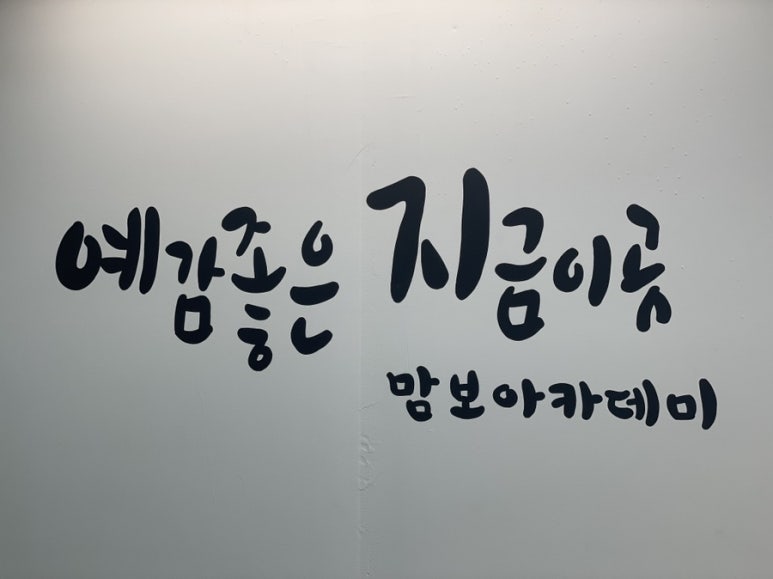 예감좋은 지금이곳
맘보아카데미